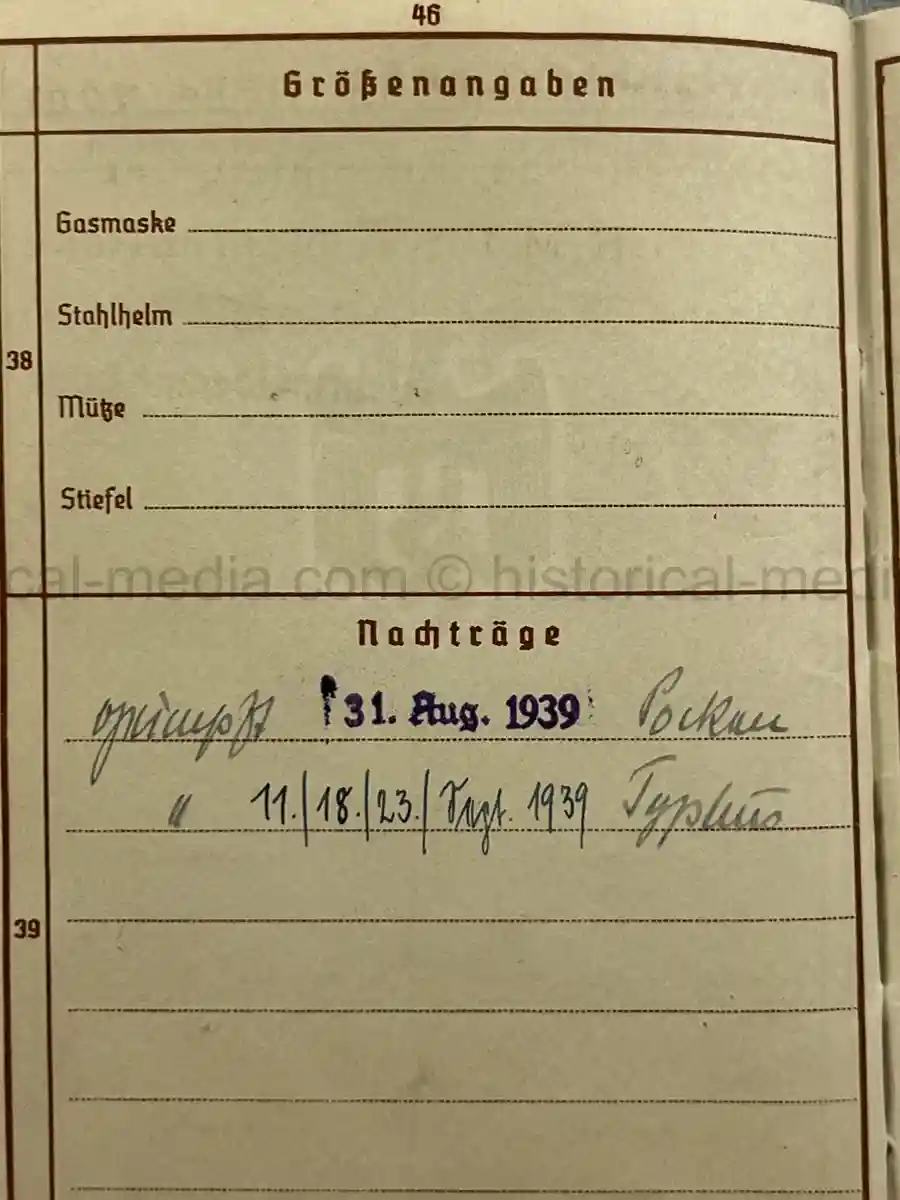 46
Größenangaben
Gasmaske
Stahlhelm
38
Mütze
Stiefel
cal-media.com © historical-medi
Nachträge
geimpft 31. Aug. 1939 Pocken
" 11./18./23./ Sept. 1939 Typhus
39